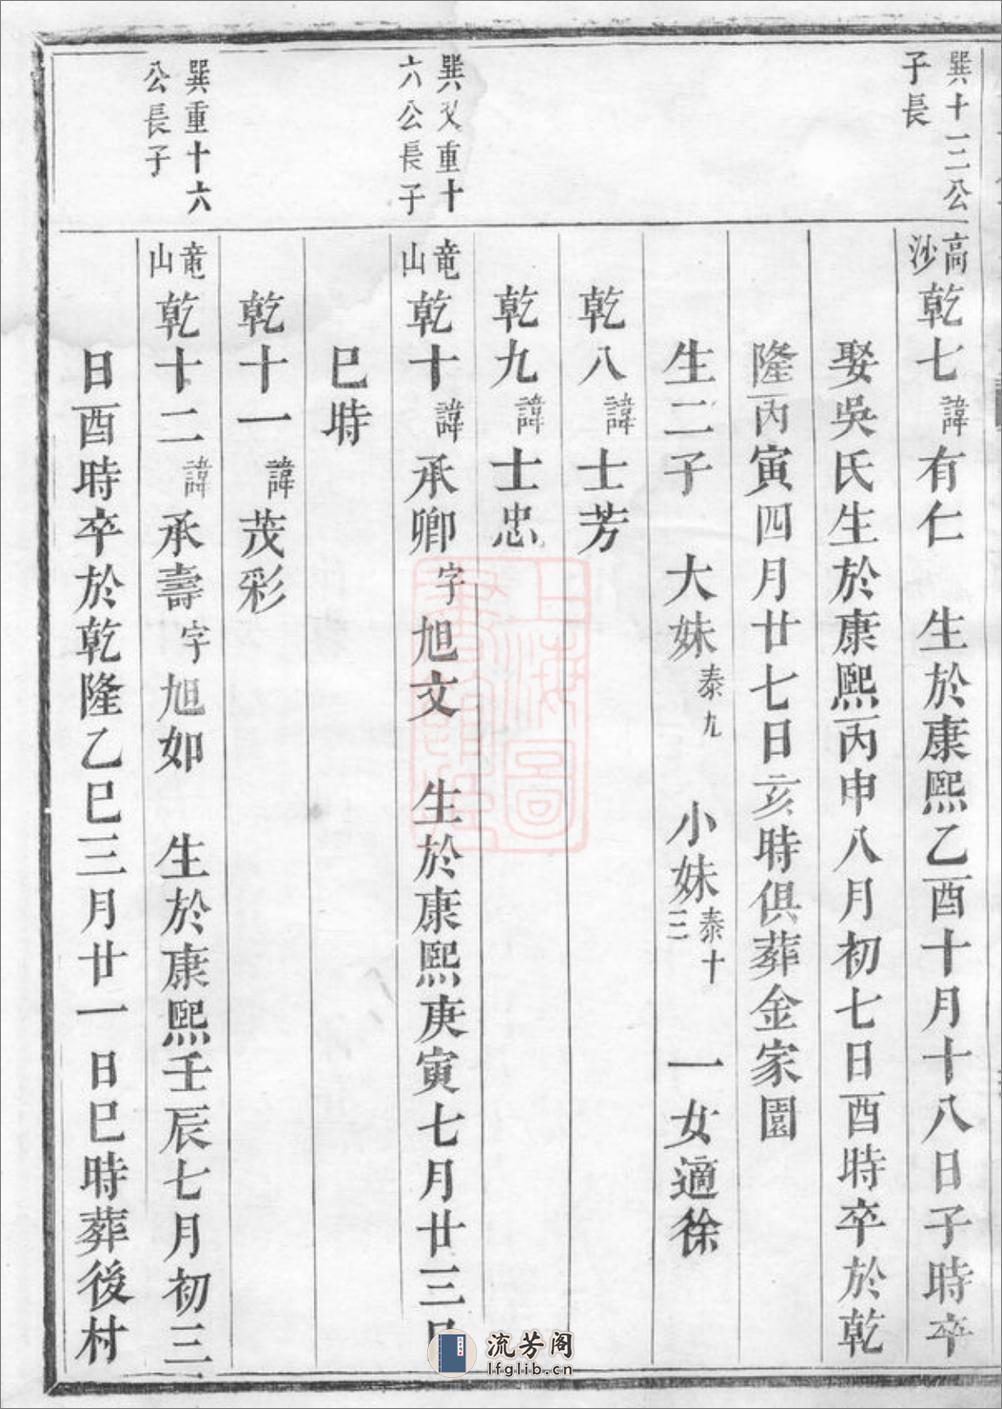 巽十三公
子長
高
沙
乾七諱有仁　生於康熙乙酉十月十八日子時卒
娶吳氏生於康熙丙申八月初七日酉時卒於乾
隆丙寅四月廿七日亥時俱葬金家園
生二子　大妹泰九　小妹泰十三　一女適徐
乾八諱士芳
乾九諱士忠
巽又重十
六公長子
竜
山
乾十諱承卿字旭文　生於康熙庚寅七月廿三日
巳時
乾十一諱茂彩
巽重十六
公長子
竜
山
乾十二諱承壽字旭如　生於康熙壬辰七月初三
日酉時卒於乾隆乙巳三月廿一日巳時葬後村
上海圖
書館藏
流芳阁
lfglib.cn